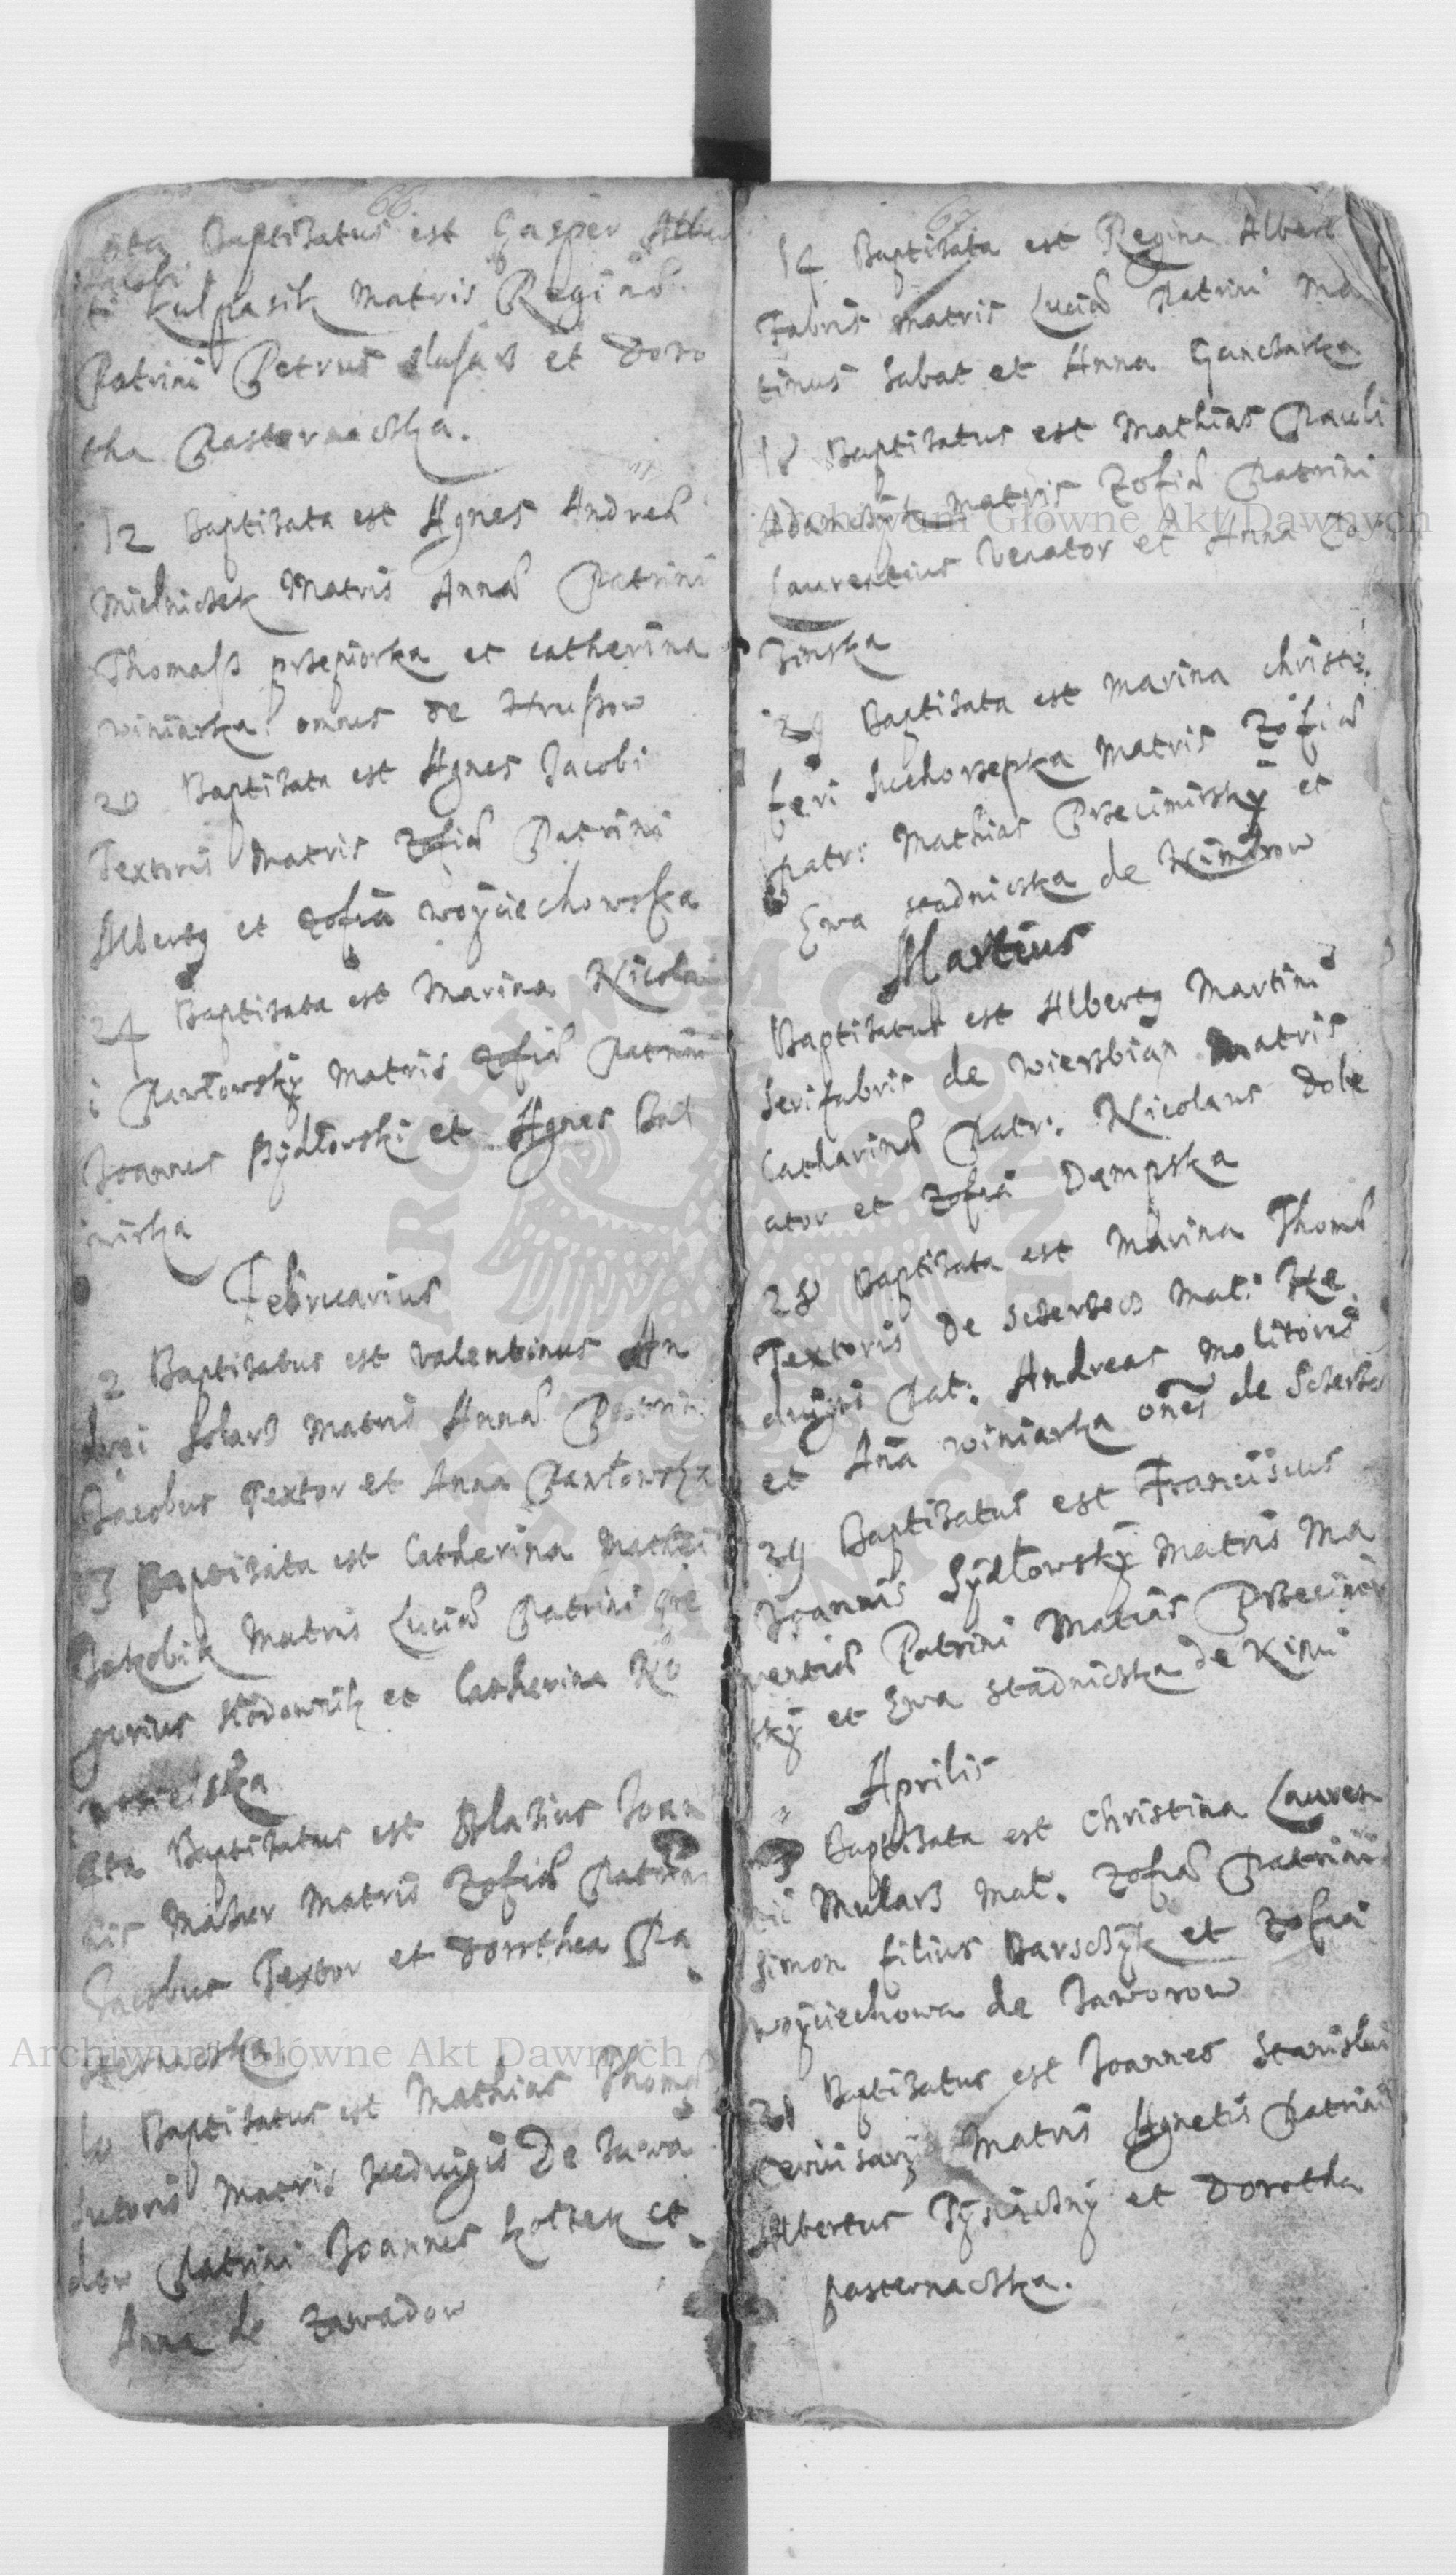 66
Baptizatus est Gasper
Jacobi
ti Kulpasik Matris Reginae
Patrini Petrus slusarz et Doro
tha Pasternaczka.
12 Baptizata est Agnes Andreae
Mielniczek Matris Annae Patrini
Thomass przepiorka et catherina
winiarka omnes de Hrussow
20 Baptizata est Agnes Jacobi
Textoris Matris Zofiae Patrini
Albertg et Zofia woÿciechowska
24 Baptizata est Marina Nicolai
i Pawłowskÿ Matris Zofiae Patrini
Joannes Bÿdłowski et Agnes
Februarius
2 Baptizatus est Valentinus An
drei Matris Annae Patrini
Jacobus Textor et Anna Pawłowska
3 Baptizata est Catherina Mathei
Jakobik Matris Luciae Patrini gre
gorius et Catherina Ko
Baptizatus est Blazius Joan
nis Matris Zofiae Patrini
Jacobus Textor et Dorothea Pa
sternaczka
10 Baptizatus est Mathias Thomae
Sutoris Matris Hedvigis De Zawa
dow Patrini Joannes et
Anna de Zawadow
67
14 Baptizata est Regina Albert
Fabris matris Luciae Patrini Ma
tinus Sabat et Anna Ganczarka
18 Baptizatus est Mathias Pauli
Adamczÿk Matris Zofiae Patrini
Laurentius Venator et Anna
zinska
29 Baptizata est Marina christo
feri Suchorzepka Matris Zofiae
patr: Mathias Przecimirskÿ et
Ewa stadnicska de
Martius
Baptizatus est Albertg Martini
Serifabris de wierzbian Matris
Catharinae Patr: Nicolaus Dole
ator et Zofia Dempska
28 Baptizata est Marina Thomae
Textoris De Mat: He
duigis Pat: Andreas Molitoris
et Ana winiarka ones de
29 Baptizatus est Franciscus
Joannis Sÿdłowskÿ Matris Ma
rentiae Patrini Matias Przecimir
skÿ et Ewa stadnicska de
Aprilis
3 Baptizata est Christina Lauren
tii Mularz Mat. Zofiae Patrini
Simon filius Barsczÿk et Zofia
woÿciechowa de Jaworow
21 Baptizatus est Joannes Stanislai
Matris Agnetis Patrini
Albertus Tÿsiączny et Dorotha
pasternaczka.
Archiwum Główne Akt Dawnych
Archiwum Główne Akt Dawnych
ARCHIWUM GŁÓWNE
AKT DAWNYCH